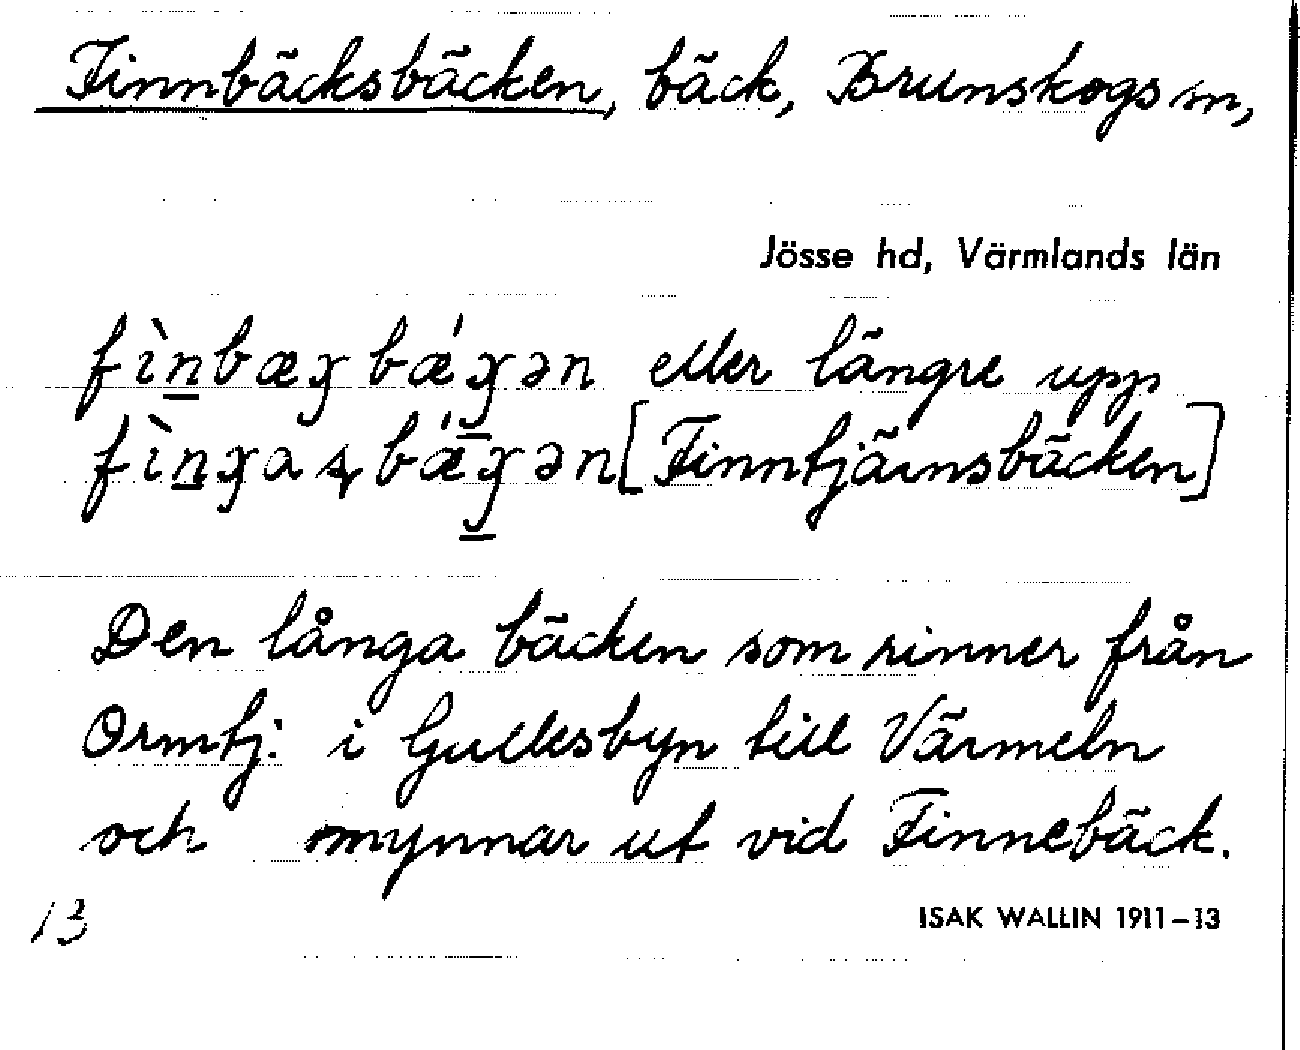 Finnbäcksbäcken, bäck, Brunskogs sn,
Jösse hd, Värmlands län
eller längre upp
[Finntjärnsbäcken]
Den långa bäcken som rinner från
Ormtj: i Gullesbyn till Värmeln
och mynnar ut vid Finnebäck.
13
ISAK WALLIN 1911-13